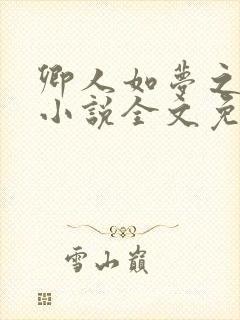 卿人如夢之
小說全文免
雪山巔